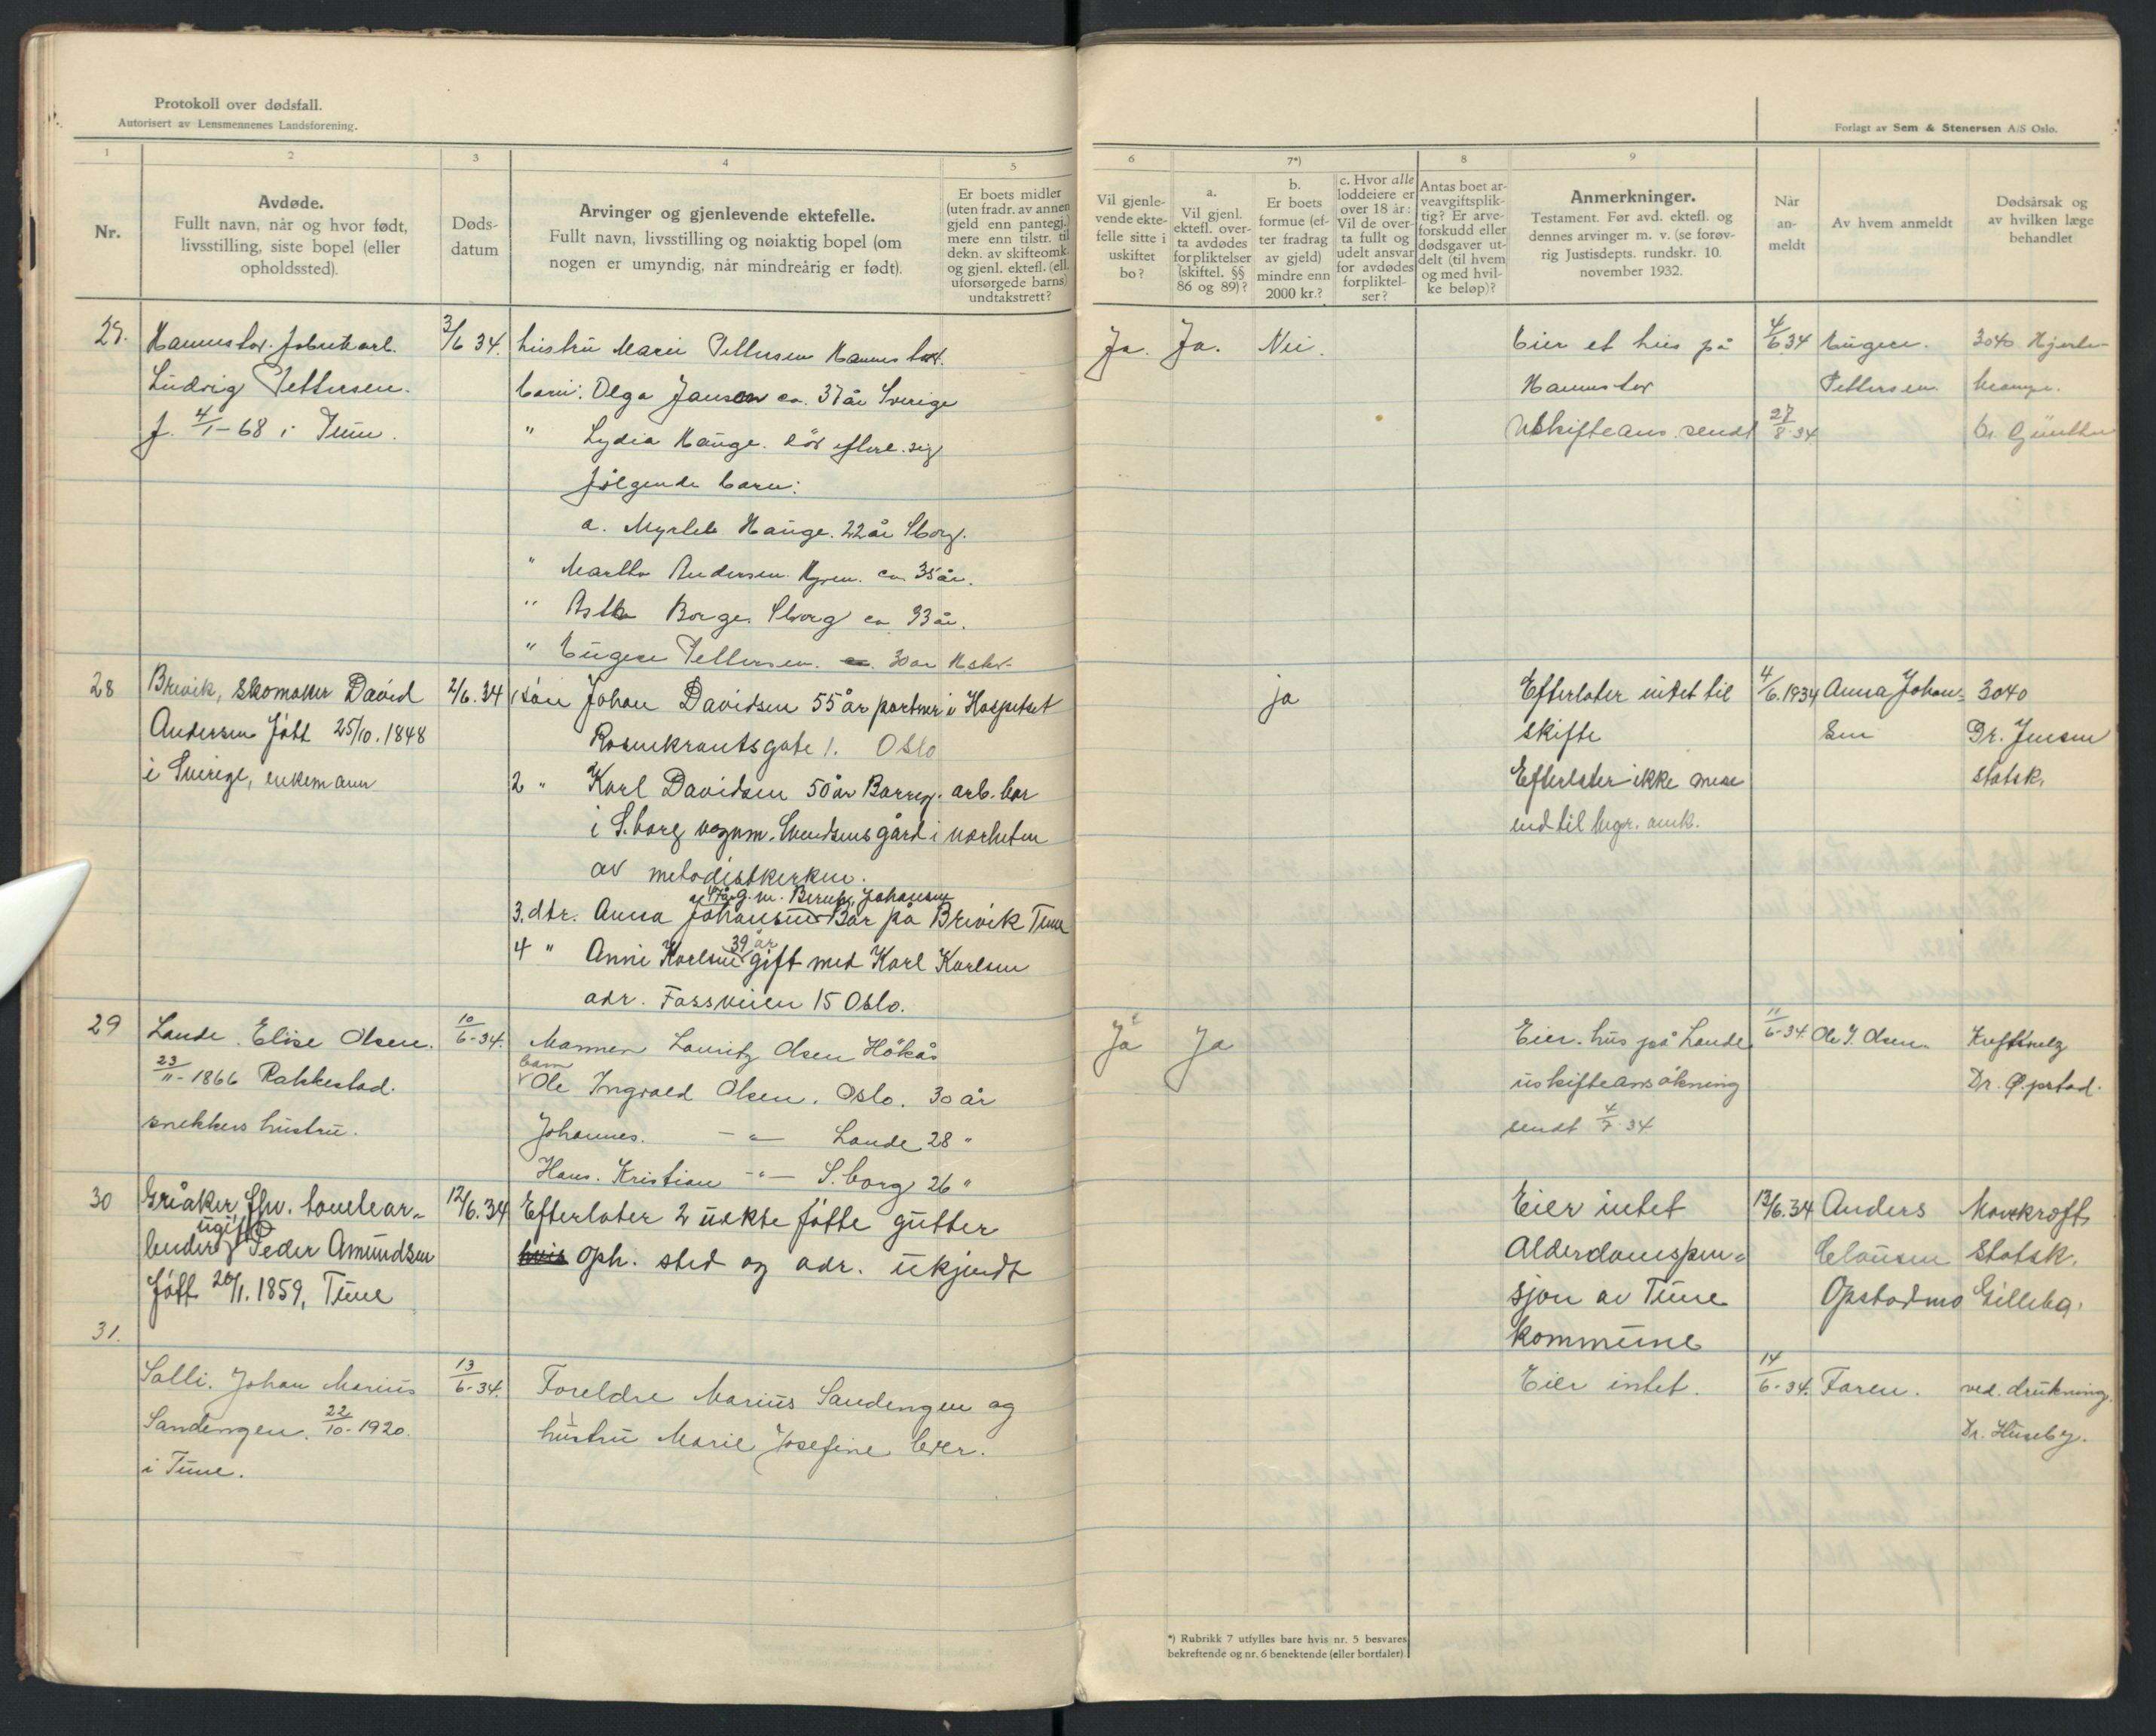 Protokoll over dødsfall.
Autorisert av Lensmennenes Landsforening.
1
2
3
4
5
Nr.
Avdøde.
Fullt navn, når og hvor født,
livsstilling, siste bopel (eller
opholdssted).
Døds-
datum
Arvinger og gjenlevende ektefelle.
Fullt navn, livsstilling og nøiaktig bopel (om
nogen er umyndig, når mindreårig er født).
Er boets midler
(uten fradr. av annen
gjeld enn pantegj.)
mere enn tilstr. til
dekn. av skifteomk.
og gjenl. ektefl. (ell.
uforsørgede barns)
undtakstrett?
27.
Ludvig Pettersen.
f. 4/1-68 i Tune.
3/6 34.
hustru Marie Pettersen
barn: Olga Jansen ca. 37 år Sverige
" Lydia Hauge. død efterl. sig
følgende barn:
a. Hauge. 22 år Sborg.
" Martha Andersen. ca 35 år.
" Borge. Sborg ca 33 år.
" Eugene Pettersen. 30 år
28
Brevik, Skomaker David
Andersen født 25/10. 1848
i Sverige, enkemann
2/6. 34
1 søn Johan Davidsen 55 år portner i Hospitset
Rosenkrantsgate 1. Oslo
2 " Karl Davidsen 50 år Borreg. arb. bor
i S.borg vognm. Svendsens gård i nærheten
av metodistkirken.
47 år g. m. Johansen
3. dtr. Anna Johansen Bor på Brevik Tune
39 år
4 " Anni Karlsen gift med Karl Karlsen
adr. Fossveien 15 Oslo.
29
Lande. Elise Olsen.
23/11-1866 Rakkestad.
snekkers hustru.
10/6-34.
Mannen Lauritz Olsen Hökås
barn
Ole Ingvald Olsen. Oslo. 30 år
Johannes. -"- Lande 28 "
Hans. Kristian -"- S.borg 26 "
30
Gråker,
ugift
Peder Amundsen
født 20/1. 1859, Tune
12/6. 34
Efterlater 2 uekte fötte gutter
oph. sted og adr. ukjendt
31.
Solli. Johan Marius
Sandengen. 22/10-1920.
i Tune.
13/6-34.
Foreldre Marius Sandengen og
hustru Marie Josefine
Forlagt av Sem & Stenersen A/S Oslo.
6
7*)
8
9
Vil gjenle-
vende ekte-
felle sitte i
uskiftet
bo?
a.
Vil gjenl.
ektefl. over-
ta avdødes
forpliktelser
(skiftel. §§
86 og 89)?
b.
Er boets
formue (ef-
ter fradrag
av gjeld)
mindre enn
2000 kr.?
c. Hvor alle
loddeiere er
over 18 år:
Vil de over-
ta fullt og
udelt ansvar
for avdødes
forpliktel-
ser?
Antas boet ar-
veavgiftsplik-
tig? Er arve-
forskudd eller
dødsgaver ut-
delt (til hvem
og med hvil-
ke beløp)?
Anmerkninger.
Testament. Før avd. ektefl. og
dennes arvinger m. v. (se forøv-
rig Justisdepts. rundskr. 10.
november 1932.
Når
an-
meldt
Av hvem anmeldt
Dødsårsak og
av hvilken læge
behandlet
Ja. Ja. Nei.
Eier et hus på
Uskifteans. sendt
4/6 34
27/8-34
Eugene.
Pettersen.
3040 Hjerte-
Dr. Günther
ja
Efterlater intet til
skifte
Efterlater ikke mere
end til begr. omk.
4/6. 1934
Anna Johan-
sen
3040
Dr. Jensen
statsk.
Ja Ja
Eier. hus på Lande
uskifteansökning
sendt 4/7-34
11/6-34.
Ole I. Olsen.
Dr. Opstad.
Eier intet
Alderdomspen-
sjon av Tune
kommune
13/6. 34
Anders
Clausen
Opstadmo
Mavekræft
Statsk.
Eier intet.
14/6-34.
Faren.
ved. drukning.
Dr. Huseby.
*) Rubrikk 7 utfylles bare hvis nr. 5 besvares
bekreftende og nr. 6 benektende (eller bortfaler)